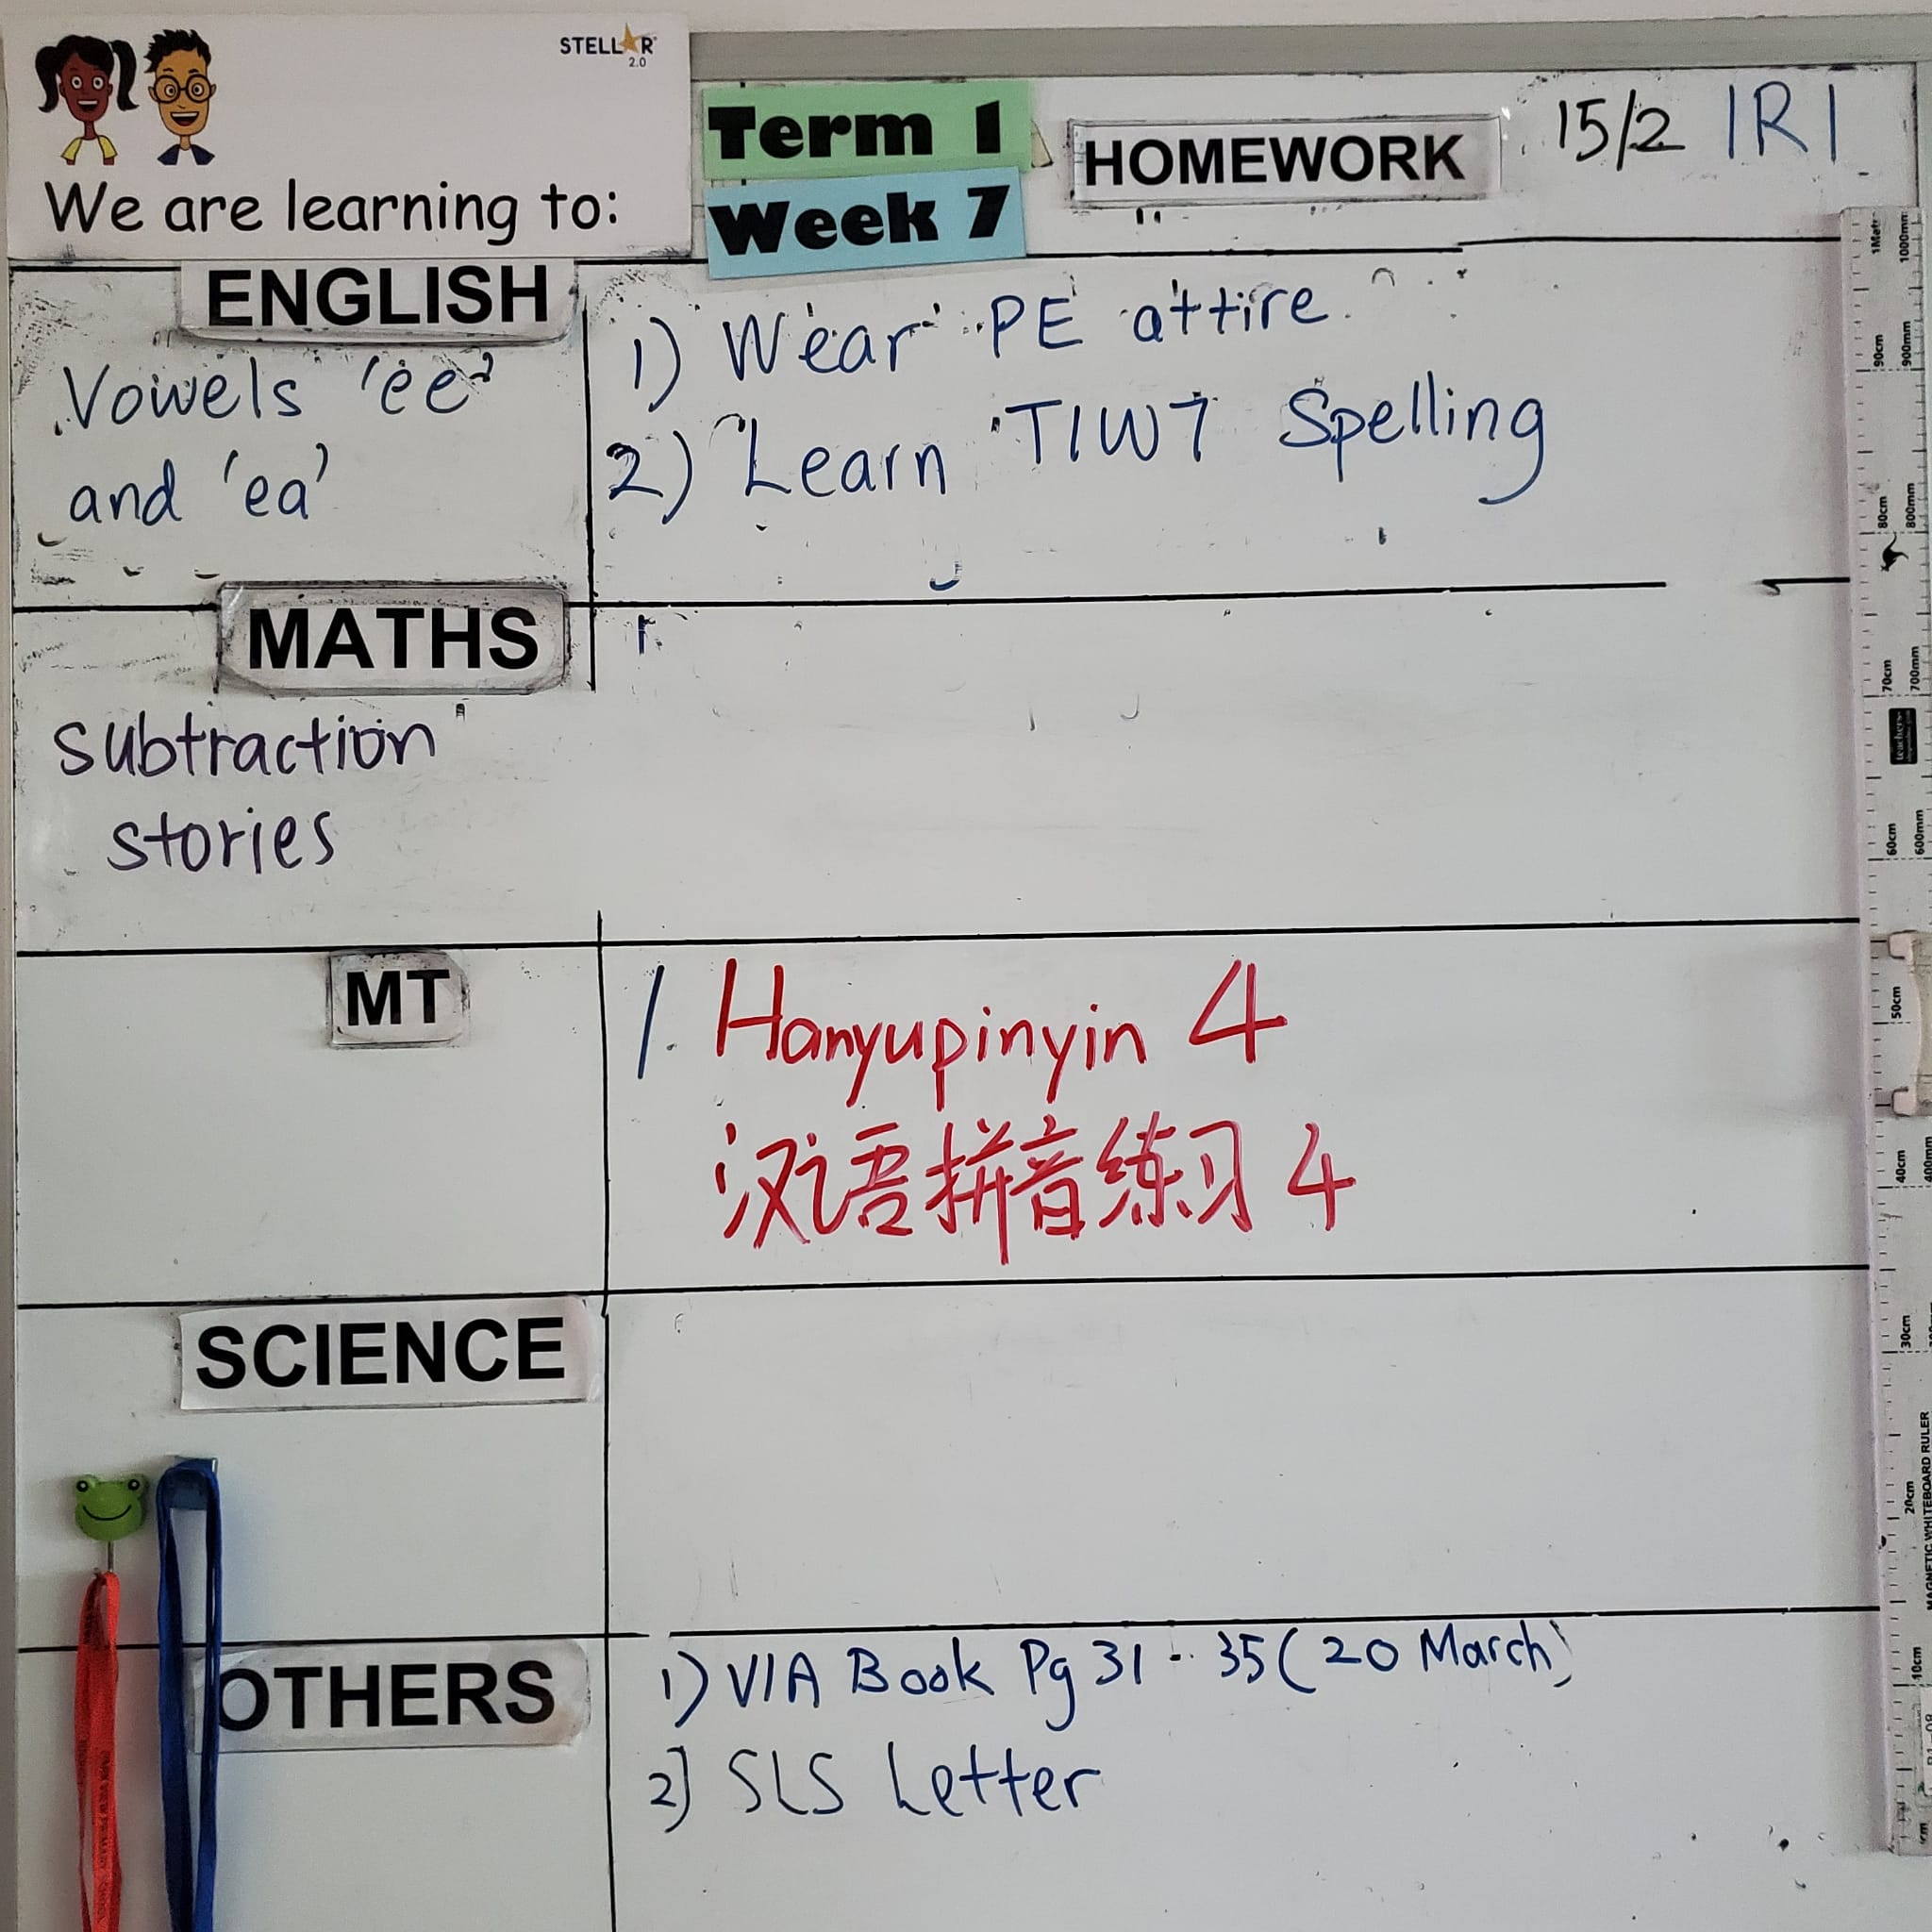 STELLAR
2.0
We are learning to:
Term 1
Week 7
HOMEWORK
15/2 1R1
ENGLISH
Vowels 'ee'
and 'ea'
1) Wear PE attire
2) Learn T1W7 Spelling
MATHS
subtraction
stories
MT
1. Hanyupinyin 4
汉语拼音练习 4
SCIENCE
OTHERS
1) VIA Book Pg 31 - 35 (20 March)
2) SLS Letter
1Metr 1000mm
90cm 900mm
80cm 800mm
70cm 700mm
teachers
60cm 600mm
50cm
40cm 400mm
30cm
20cm
MAGNETIC WHITEBOARD RULER
10cm